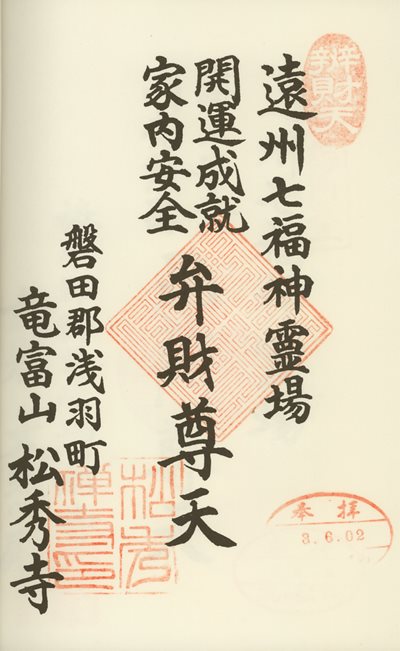 辨財天
遠州七福神霊場
開運成就
家内安全
弁財尊天
磐田郡浅羽町
竜富山 松秀寺
松秀禅寺印
奉拝
3.6.02